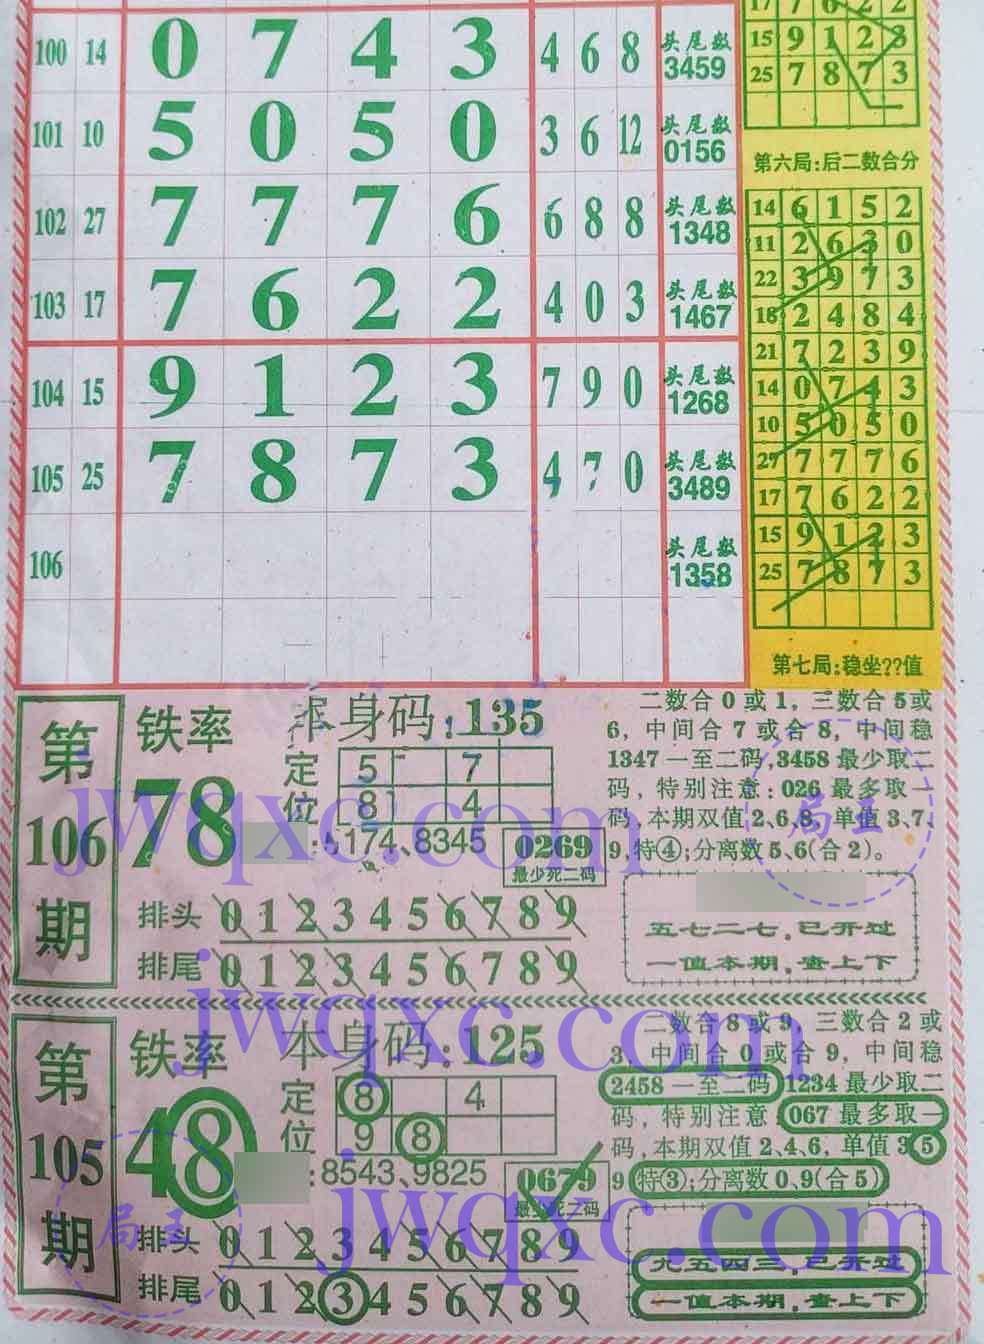 17 7 6 2 2
100 14 0 7 4 3 4 6 8 头尾数 3459
101 10 5 0 5 0 3 6 12 头尾数 0156
102 27 7 7 7 6 6 8 8 头尾数 1348
103 17 7 6 2 2 4 0 3 头尾数 1467
104 15 9 1 2 3 7 9 0 头尾数 1268
105 25 7 8 7 3 4 7 0 头尾数 3489
106 头尾数 1358
15 9 1 2 3
25 7 8 7 3
第六局:后二数合分
14 6 1 5 2
11 2 6 3 0
22 3 9 7 3
18 2 4 8 4
21 7 2 3 9
14 0 7 4 3
10 5 0 5 0
27 7 7 7 6
17 7 6 2 2
15 9 1 2 3
25 7 8 7 3
第七局:稳坐??值
第106期
铁率
78
本身码:135
定位
5 7
8 4
:5174、8345
0269
最少死二码
排头 0 1 2 3 4 5 6 7 8 9
排尾 0 1 2 3 4 5 6 7 8 9
二数合0或1,三数合5或
6,中间合7或合8,中间稳
1347一至二码,3458最少取二
码,特别注意:026最多取一
码,本期双值2、6、8,单值3、7、
9,特④;分离数5、6(合2)。
局王
五七二七,已开过
一值本期,查上下
jwqxc.com
第105期
铁率
48
本身码:125
定位
8 4
9 8
:8543、9825
0679
最少死二码
排头 0 1 2 3 4 5 6 7 8 9
排尾 0 1 2 3 4 5 6 7 8 9
二数合8或9,三数合2或
3,中间合0或合9,中间稳
2458一至二码 1234最少取二
码,特别注意 067最多取一
码,本期双值2、4、6,单值3 5
9 特③;分离数0、9(合5)
九五四三,已开过
一值本期,查上下
局王
jwqxc.com
jwqxc.com